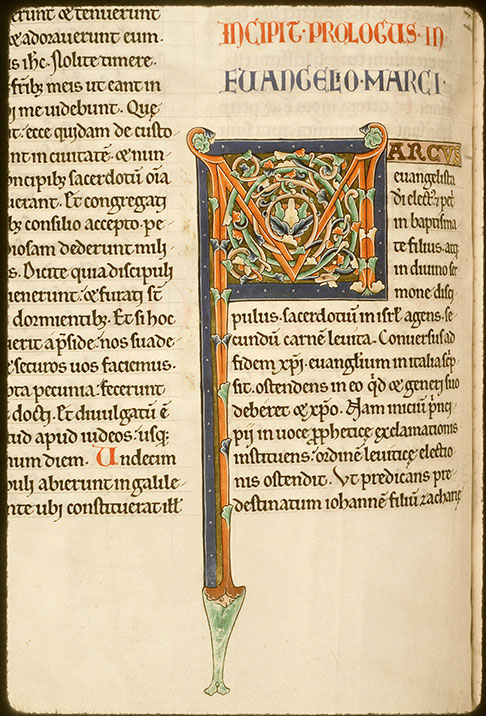 erunt & tenuerunt
& adorauerunt eum.
s ihc. Nolite timere.
fr̄ib; meis ut eant in
i me uidebunt. Quę
t. ecce quidam de custo
nt in ciuitatē. & nun
ncipib; sacerdotū om̄ia
uerant. Et congregati
b; consilio accepto. pe
iosam dederunt mili
s. Dicite quia discipuli
uenerunt. & furati sт̄
dormientib;. Et si hoc
erit a p̄side. nos suade
& securos uos faciemus.
ota pecunia. fecerunt
docti. Et diuulgatū ē
tud apud iudeos. usq;
num diem. Undecim
puli abierunt in galile
nte ubi constituerat ill̄
INCIPIT·PROLOGUS·IN
EUANGELIO·MARCI·
MARCUS
euangelista
di elect; & pet̄
in baptisma
te filius. atq;
in diuino ser
mone disci
pulus. sacerdotiū in isrl̄ agens. se
cundū carnē leuita. Conuersus ad
fidem xp̄i. euangl̄ium in italia sc̄p
sit. ostendens in eo q̄d & generi suo
deberet & xp̄o. Nam iniciū p̄nci
pii in uoce ꝓpheticę exclamationis
instituens. ordinē leuiticę electio
nis ostendit. Ut predicans pre
destinatum iohannē filiū zacharię